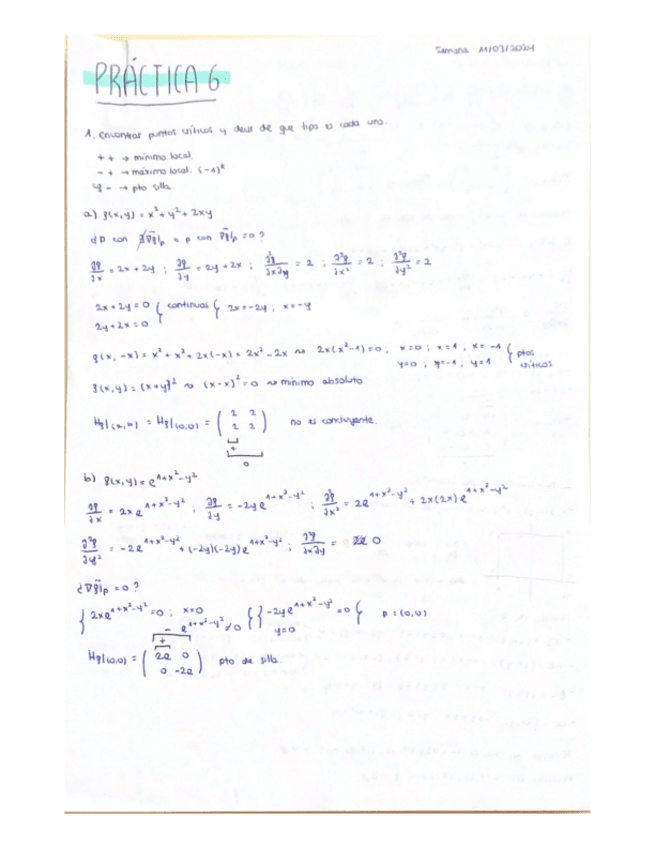 Semana 11/03/2024
PRÁCTICA 6
1. Encontrar puntos críticos y decir de que tipo es cada uno.
+ + → mínimo local.
- + → máximo local. (-1)ᵏ
- → pto silla.
a) f(x,y) = x² + y² + 2xy
¿p con ∄∇f|p o p con ∇f|p = 0?
∂f/∂x = 2x + 2y ; ∂f/∂y = 2y + 2x ; ∂f/∂x∂y = 2 ; ∂²f/∂x² = 2 ; ∂²f/∂y² = 2
2x + 2y = 0 } continuas { 2x = -2y ; x = -y
2y + 2x = 0
f(x, -x) = x² + x² + 2x(-x) = 2x² - 2x ⇝ 2x(x² - 1) = 0 , x=0 ; x=1 ; x=-1 } ptos
y=0 , y=-1 , y=1 críticos
f(x,y) = (x+y)² ⇝ (x-x)² = 0 ⇝ mínimo absoluto
Hf|(0,0) = ( 2 2
2 2 ) no es concluyente.
+
0
b) f(x,y) = e^1+x²-y²
∂f/∂x = 2x e^1+x²-y² ; ∂f/∂y = -2y e^1+x²-y² ; ∂f/∂x² = 2e^1+x²-y² + 2x(2x) e^1+x²-y²
∂²f/∂y² = -2e^1+x²-y² + (-2y)(-2y) e^1+x²-y² ; ∂²f/∂x∂y = 0
¿∇f|p = 0?
{ 2x e^1+x²-y² = 0 ; x=0 { } -2y e^1+x²-y² = 0 { p = (0,0)
e^1+x²-y² ≠ 0 y=0
- +
Hf|(0,0) = ( 2e 0
0 -2e ) pto de silla.